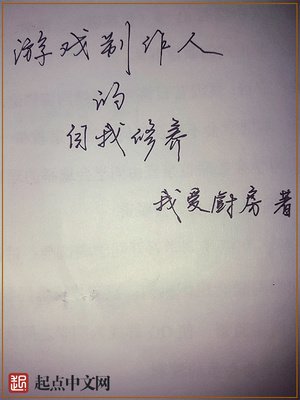 游戏制作人
的
自我修养
我爱厨房 著
起点中文网